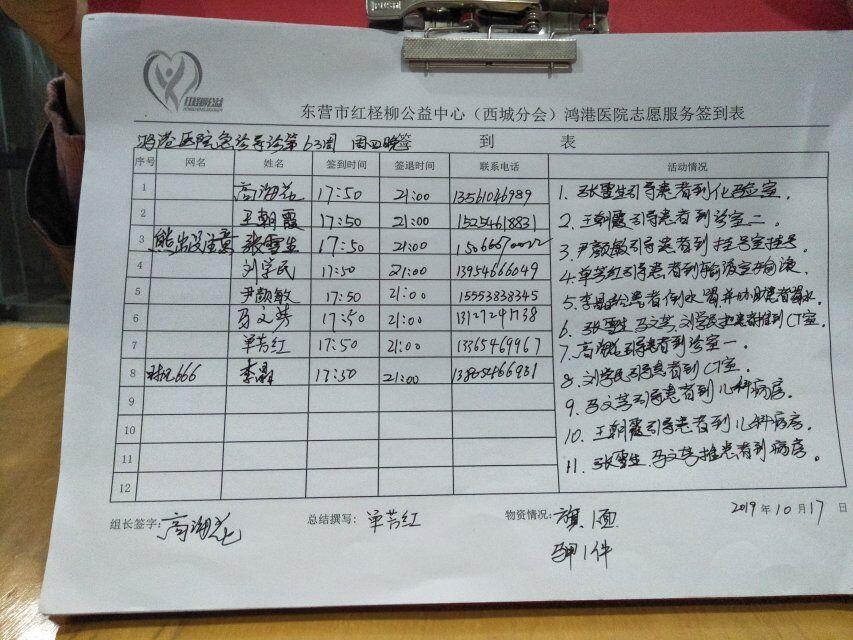 东营市红柽柳公益中心（西城分会）鸿港医院志愿服务签到表
鸿港医院急诊导诊第63周 周四晚签 到 表
序号 网名 姓名 签到时间 签退时间 联系电话 活动情况
1 高湘花 17:50 21:00 13561046989
2 王朝霞 17:50 21:00 15254618831
3 熊出没注意 张雪生 17:50 21:00
4 刘学民 17:50 21:00 13954666049
5 尹颜敏 17:50 21:00 15553838345
6 马文芳 17:50 21:00
7 单芳红 17:50 21:00 13365469967
8 666 李晶 17:50 21:00 13865466931
9
10
11
12
1. 张雪生引导患者到化验室.
2. 王朝霞引导患者到诊室二.
3. 尹颜敏引导患者到挂号室挂号
4. 单芳红引导患者到输液室输液
5. 李晶给患者倒水
6. 张雪生 马文芳 刘学民把患者推到CT室.
7. 高湘花引导患者到诊室一.
8. 刘学民引导患者到CT室.
9. 马文芳引导患者到儿科病房.
10. 王朝霞引导患者到儿科病房.
11. 张雪生 马文芳推患者到病房.
组长签字: 高湘花 总结撰写: 单芳红 物资情况: 旗1面 2019年10月17日
马甲1件